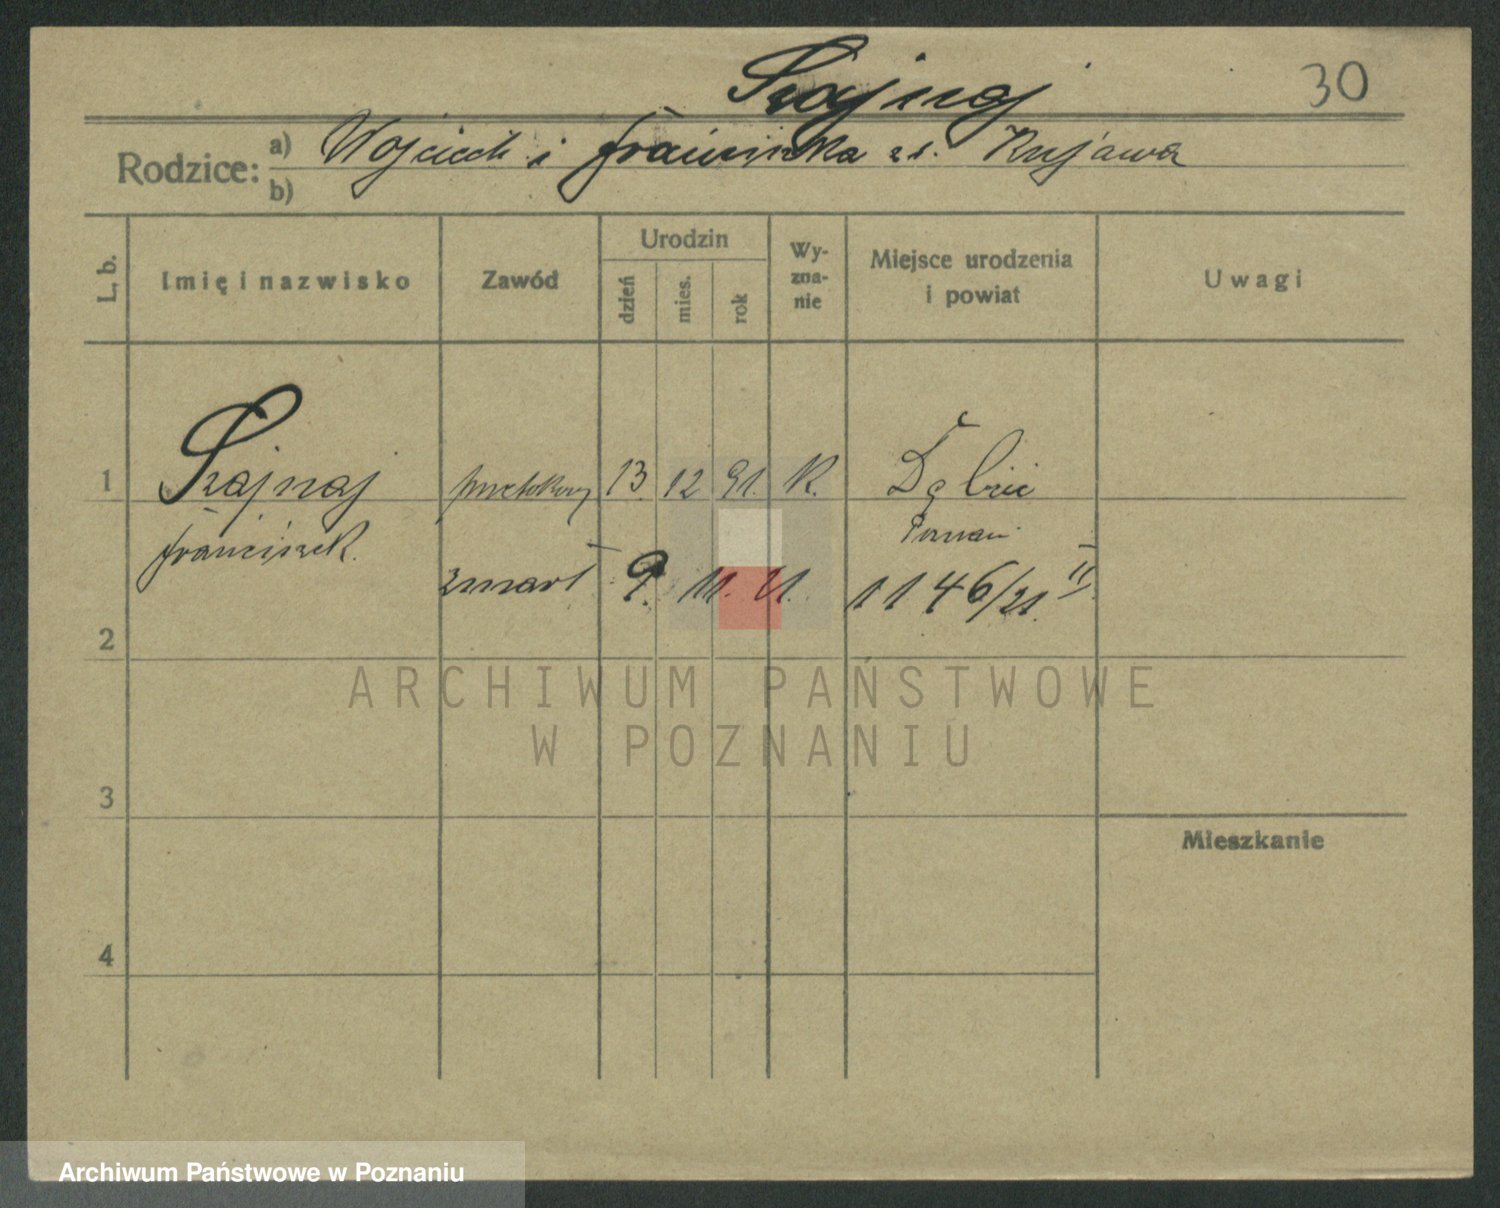 Szajnaj 30
Rodzice: a) Wojciech i Franciszka z d. Kujawa
b)
L. b. Imię i nazwisko Zawód Urodzin dzień mies. rok Wy-zna-nie Miejsce urodzenia i powiat Uwagi
1 Szajnaj 13. 12 91. K.
Franciszek Poznań
zmarł 9. 11. 21. 1146/21. II
2
ARCHIWUM PAŃSTWOWE
W POZNANIU
3
Mieszkanie
4
Archiwum Państwowe w Poznaniu